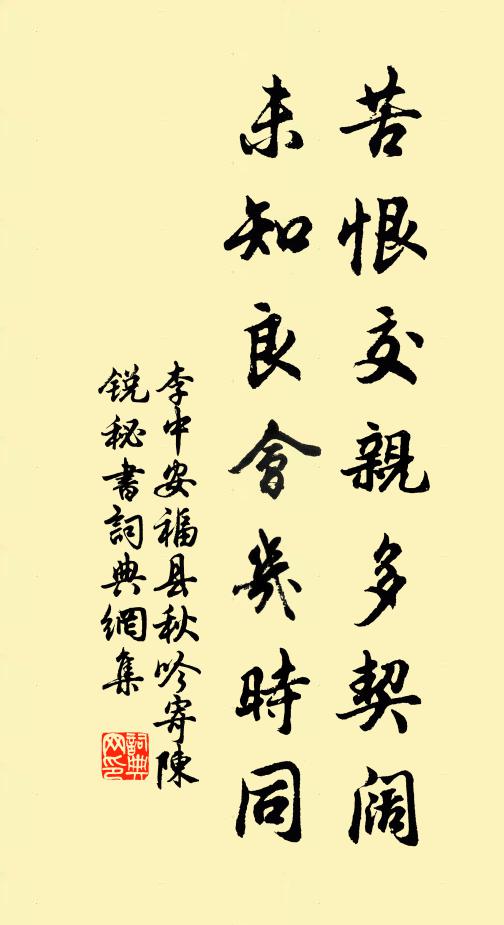 苦恨交親多契阔
未知良會幾時同
李中安福县秋吟寄陳
锐秘書詞典網集
詞典
网印